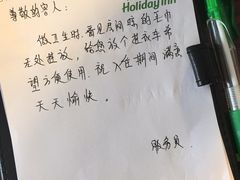 尊敬的客人：
Holiday Inn
做卫生时，看见房间晾的毛巾
无处摆放，给您放个进衣车希
望方便使用。祝入住期间满意
天天愉快。
服务员